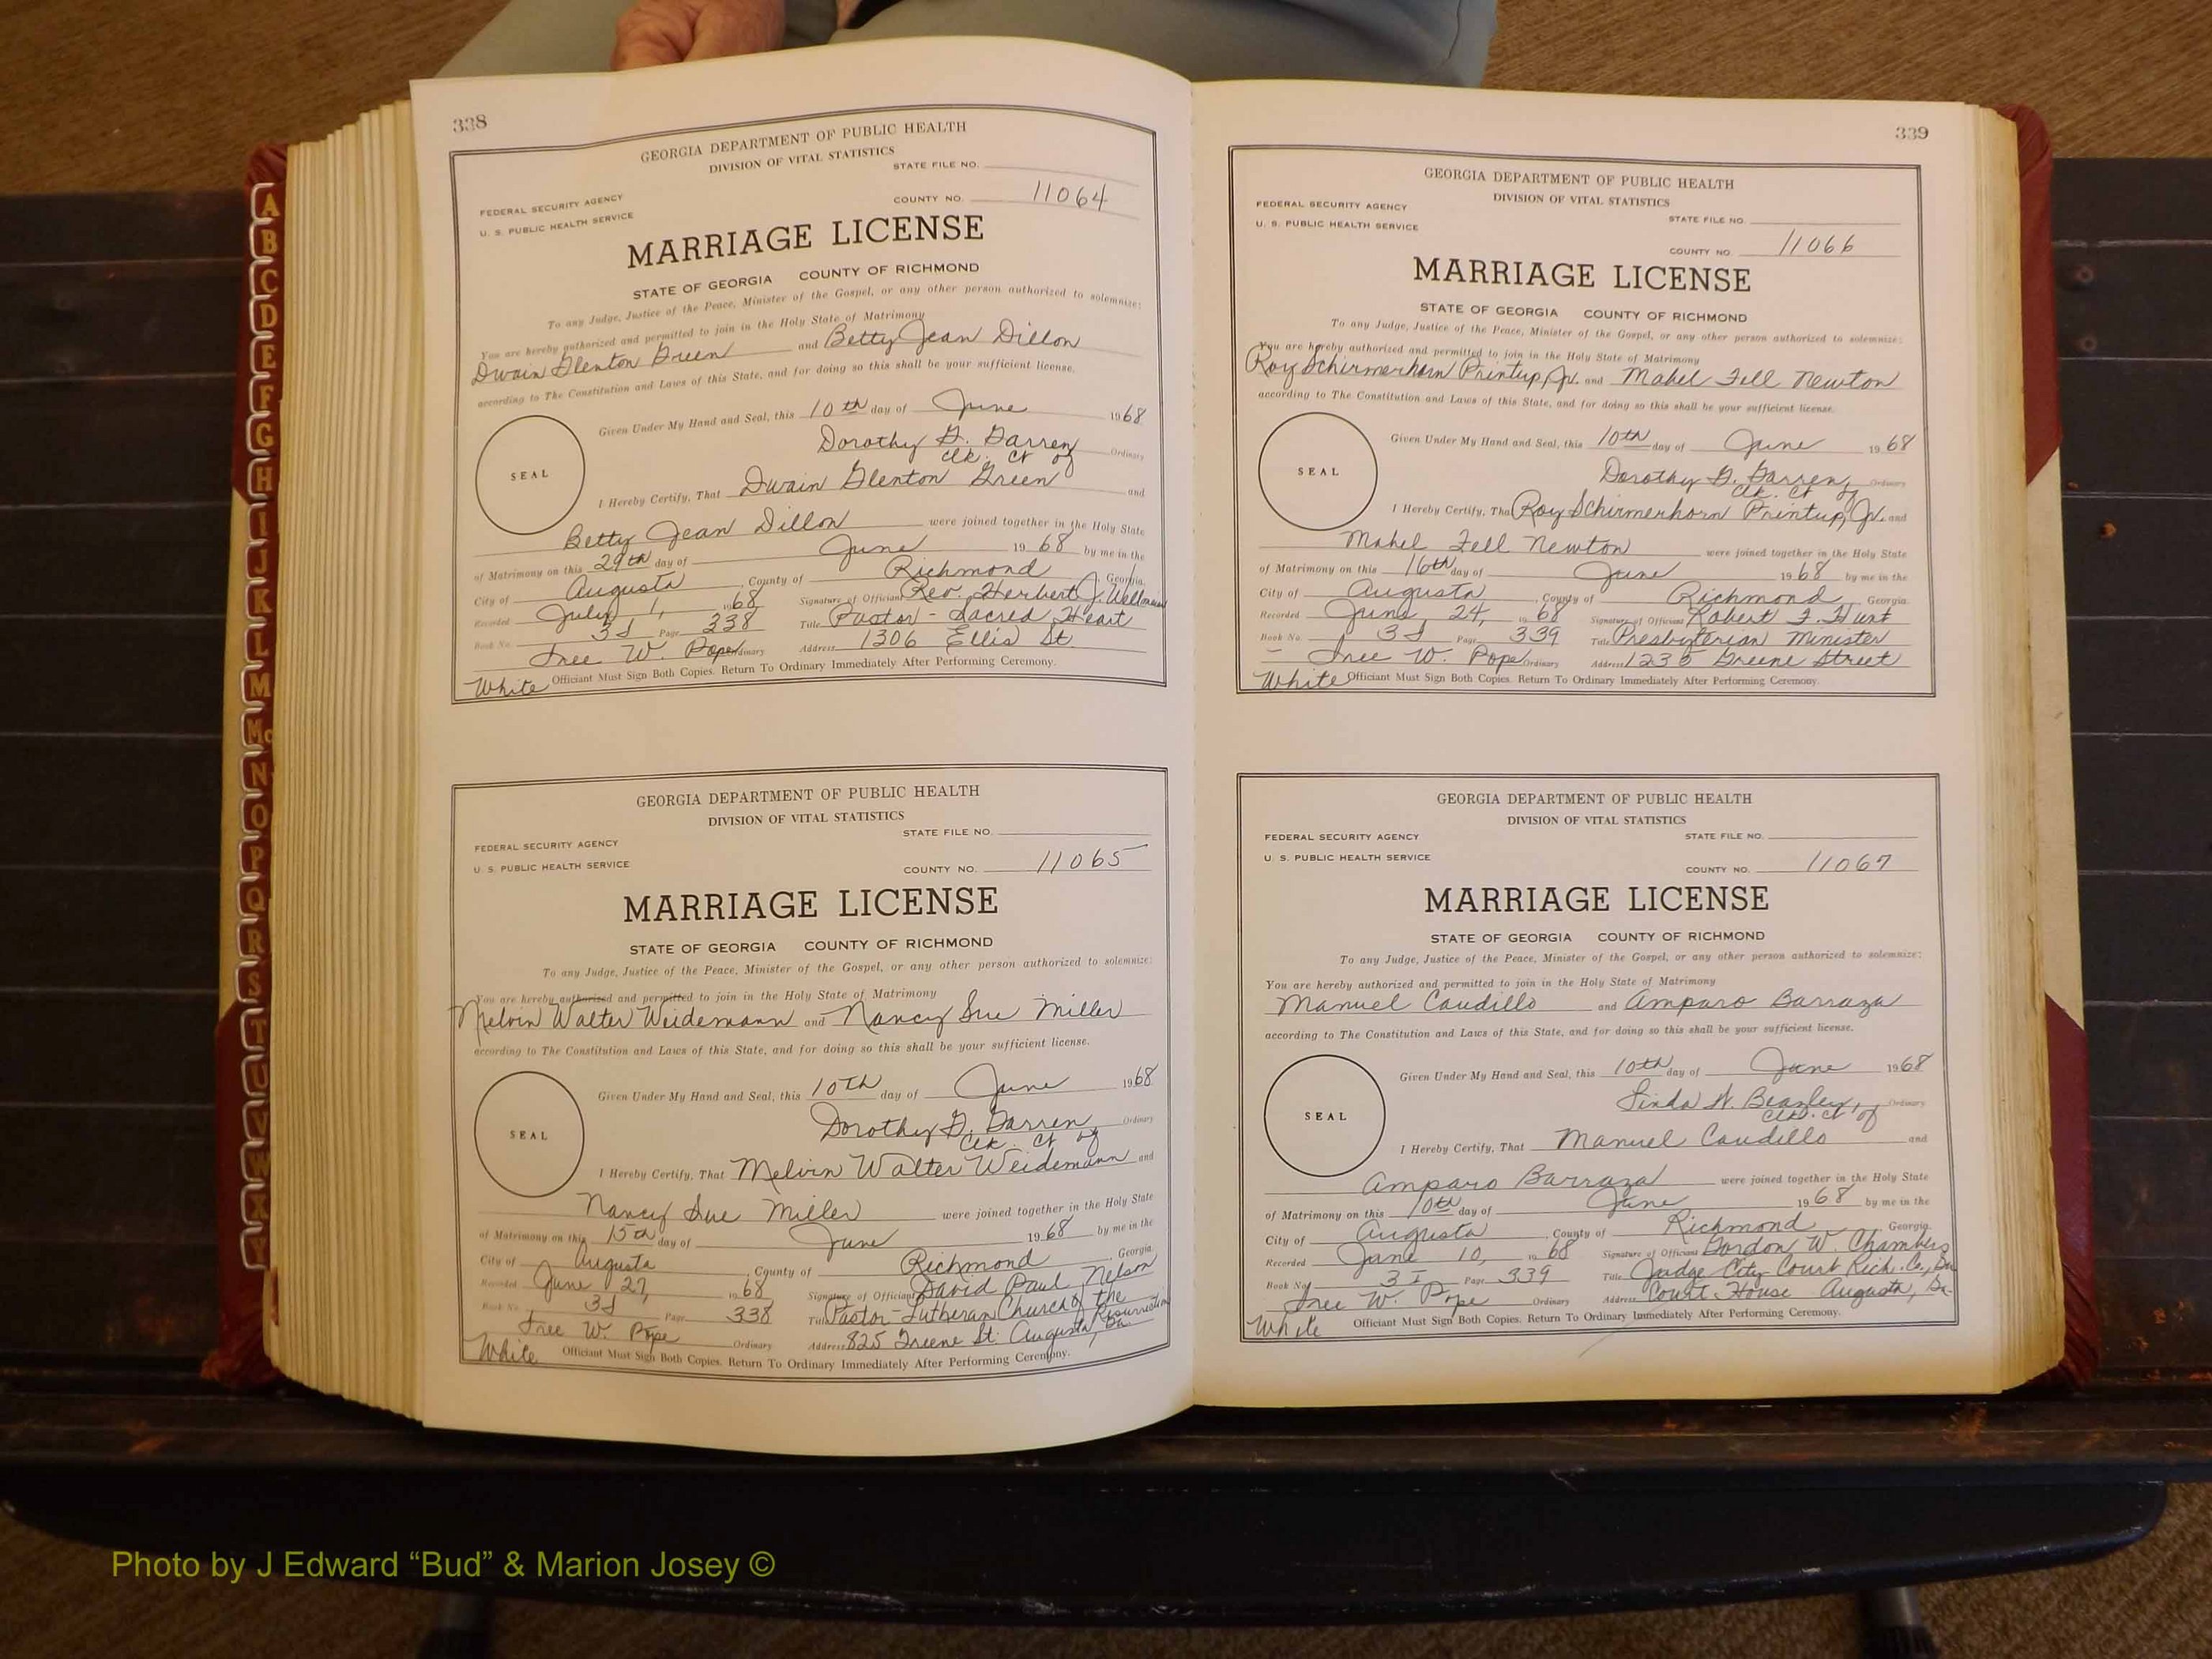 338
GEORGIA DEPARTMENT OF PUBLIC HEALTH
DIVISION OF VITAL STATISTICS
STATE FILE NO.
FEDERAL SECURITY AGENCY
U. S. PUBLIC HEALTH SERVICE
COUNTY NO. 11064
MARRIAGE LICENSE
STATE OF GEORGIA COUNTY OF RICHMOND
To any Judge, Justice of the Peace, Minister of the Gospel, or any other person authorized to solemnize:
You are hereby authorized and permitted to join in the Holy State of Matrimony
Dwain Glenton Green and Betty Jean Dillon
according to The Constitution and Laws of this State, and for doing so this shall be your sufficient license.
Given Under My Hand and Seal, this 10th day of June 1968
Dorothy G. Garren, Ordinary
Clk. Ct of
SEAL
I Hereby Certify, That Dwain Glenton Green and
Betty Jean Dillon were joined together in the Holy State
of Matrimony on this 29th day of June 1968 by me in the
City of Augusta, County of Richmond, Georgia.
Recorded July 1, 1968 Signature of Official Rev. Herbert J.
Book No. 3J Page 338 Title Pastor - Sacred Heart
Inee W. Pope Ordinary Address 1306 Ellis St.
White Officiant Must Sign Both Copies. Return To Ordinary Immediately After Performing Ceremony.
GEORGIA DEPARTMENT OF PUBLIC HEALTH
DIVISION OF VITAL STATISTICS
STATE FILE NO.
FEDERAL SECURITY AGENCY
U. S. PUBLIC HEALTH SERVICE
COUNTY NO. 11065
MARRIAGE LICENSE
STATE OF GEORGIA COUNTY OF RICHMOND
To any Judge, Justice of the Peace, Minister of the Gospel, or any other person authorized to solemnize:
You are hereby authorized and permitted to join in the Holy State of Matrimony
Melvin Walter Weidemann and Nancy Sue Miller
according to The Constitution and Laws of this State, and for doing so this shall be your sufficient license.
Given Under My Hand and Seal, this 10th day of June 1968
Dorothy G. Garren Ordinary
Clk. Ct of
SEAL
I Hereby Certify, That Melvin Walter Weidemann and
Nancy Sue Miller were joined together in the Holy State
of Matrimony on this 15th day of June 1968 by me in the
City of Augusta, County of Richmond, Georgia.
Recorded June 27, 1968 Signature of Official David Paul Nelson
Book No. 3J Page 338 Title Pastor - Lutheran Church of the Resurrection
Inee W. Pope Ordinary Address 825 Greene St. Augusta, Ga.
White Officiant Must Sign Both Copies. Return To Ordinary Immediately After Performing Ceremony.
339
GEORGIA DEPARTMENT OF PUBLIC HEALTH
DIVISION OF VITAL STATISTICS
FEDERAL SECURITY AGENCY
STATE FILE NO.
U. S. PUBLIC HEALTH SERVICE
COUNTY NO. 11066
MARRIAGE LICENSE
STATE OF GEORGIA COUNTY OF RICHMOND
To any Judge, Justice of the Peace, Minister of the Gospel, or any other person authorized to solemnize:
You are hereby authorized and permitted to join in the Holy State of Matrimony
Roy Schirmerhorn Printup, Jr. and Mabel Fell Newton
according to The Constitution and Laws of this State, and for doing so this shall be your sufficient license.
Given Under My Hand and Seal, this 10th day of June 1968
Dorothy G. Garren, Ordinary
Clk. Ct of
SEAL
I Hereby Certify, That Roy Schirmerhorn Printup, Jr. and
Mabel Fell Newton were joined together in the Holy State
of Matrimony on this 16th day of June 1968 by me in the
City of Augusta, County of Richmond, Georgia.
Recorded June 24, 1968 Signature of Official Robert F. Hunt
Book No. 3J Page 339 Title Presbyterian Minister
Inee W. Pope Ordinary Address 1235 Greene Street
White Officiant Must Sign Both Copies. Return To Ordinary Immediately After Performing Ceremony.
GEORGIA DEPARTMENT OF PUBLIC HEALTH
DIVISION OF VITAL STATISTICS
FEDERAL SECURITY AGENCY STATE FILE NO.
U. S. PUBLIC HEALTH SERVICE
COUNTY NO. 11067
MARRIAGE LICENSE
STATE OF GEORGIA COUNTY OF RICHMOND
To any Judge, Justice of the Peace, Minister of the Gospel, or any other person authorized to solemnize:
You are hereby authorized and permitted to join in the Holy State of Matrimony
Manuel Caudillo and Amparo Barraza
according to The Constitution and Laws of this State, and for doing so this shall be your sufficient license.
Given Under My Hand and Seal, this 10th day of June 1968
Linda W. Beazley, Ordinary
Clk. Ct of
SEAL
I Hereby Certify, That Manuel Caudillo and
Amparo Barraza were joined together in the Holy State
of Matrimony on this 10th day of June 1968 by me in the
City of Augusta, County of Richmond, Georgia.
Recorded June 10, 1968 Signature of Official Gordon W. Chambers
Book No. 3 I Page 339 Title Judge City Court Rich. Co., Ga
Inee W. Pope Ordinary Address Court House Augusta, Ga.
White Officiant Must Sign Both Copies. Return To Ordinary Immediately After Performing Ceremony.
A
B
C
D
E
F
G
H
I
J
K
L
M
Mc
N
O
P
Q
R
S
T
U
V
W
X
Y
Photo by J Edward “Bud” & Marion Josey ©